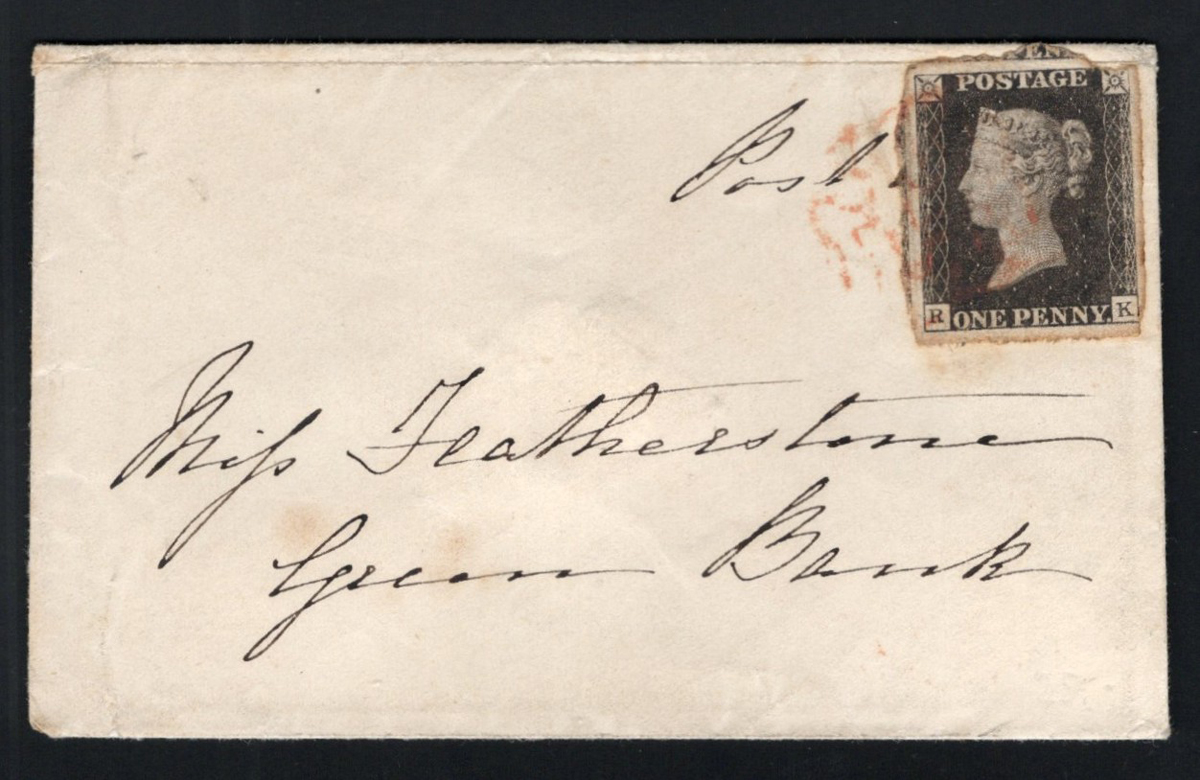 POSTAGE
Post
R ONE PENNY. K
Miss Featherstone
Green Bank